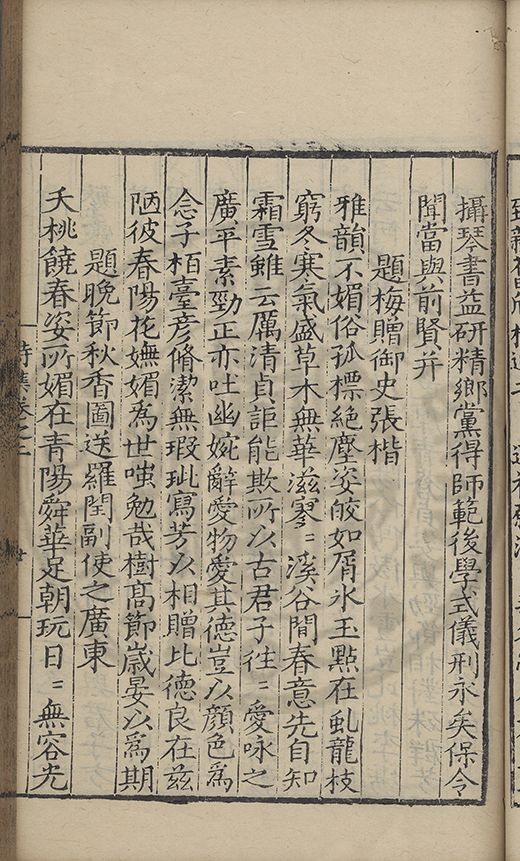 攝琴書益研精鄉黨得師範後學式儀刑永矣保令
聞當與前賢并
題梅贈御史張楷
雅韻不媚俗孤標絕塵姿皎如屑氷玉點在虬龍枝
窮冬寒氣盛草木無華滋寥〻溪谷間春意先自知
霜雪雖云厲清貞詎能欺所以古君子徃〻愛咏之
廣平素勁正亦吐幽婉辭愛物愛其德豈以顔色爲
念子栢臺彦脩潔無瑕玼寫芳以相贈比德良在兹
陋彼春陽花嫵媚為世嗤勉哉樹髙節嵗晏以爲期
題晚節秋香圖送羅閏副使之廣東
夭桃饒春姿所媚在青陽舜華足朝玩日〻無容光
詩集卷之二